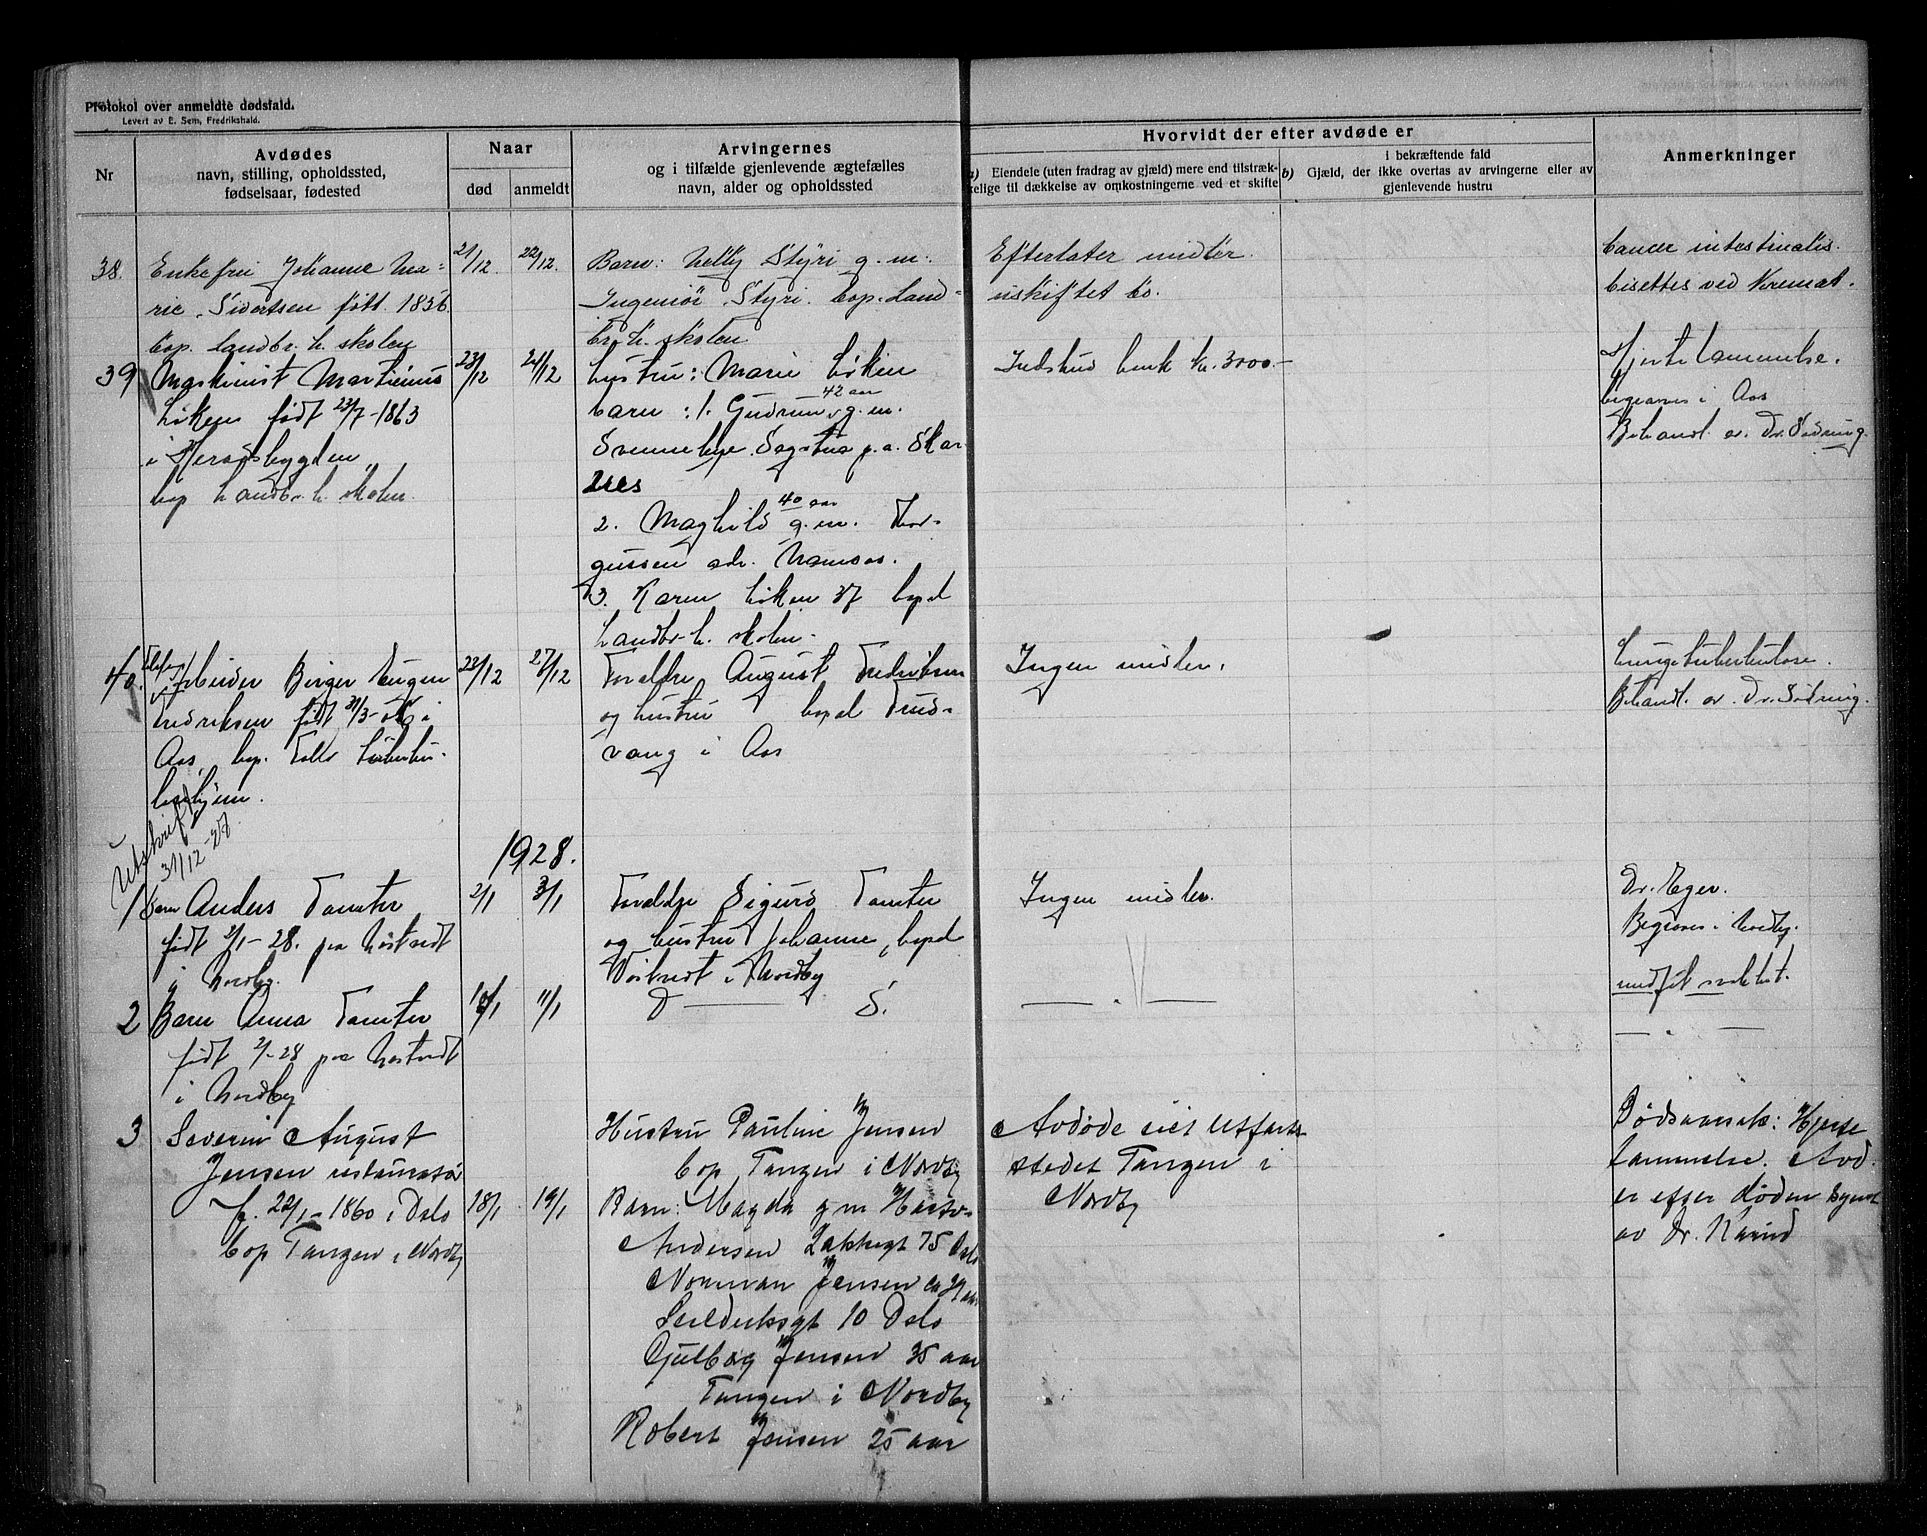 Protokol over anmeldte dødsfald.
Levert av E. Sem, Fredrikshald.
Nr
Avdødes
navn, stilling, opholdssted,
fødselsaar, fødested
Naar
død
anmeldt
Arvingernes
og i tilfælde gjenlevende ægtefælles
navn, alder og opholdssted
Hvorvidt der efter avdøde er
a) Eiendele (uten fradrag av gjæld) mere end tilstræk-
kelige til dækkelse av omkostningerne ved et skifte
i bekræftende fald
b) Gjæld, der ikke overtas av arvingerne eller av
gjenlevende hustru
Anmerkninger
38.
Enkefru Johanne Ma-
rie Sivertsen født 1836
bop. Landbr. h. skolen
21/12
22/12.
Barn: Nelly Styri g.m.
Ingeniør Styri. bop. Land-
br. h. skolen
Efterlater midler
uskiftet bo.
Cancer intestinalis.
bisettes ved Kremat.
39
Maskinist Martinius
Løken født 23/7-1863
i Heradsbygden
bop Landbr. h. skolen.
23/12
24/12
hustru: Marie Løken
42 aar
barn: 1. Gudrun g.m.
Svennebye Sagstua p.a. Skar
nes
40 aar
2. Maghild g.m. Tor-
gussen adr. Namsos.
3. Karen Løken 37 bopl
Landbr. h. skolen.
Indskud bank kr. 3000-
Hjertelammelse.
begraves i Aas
Behandl. av Dr. Sødring.
40.
Arbeider Birger Eugen
Fredriksen født 31/3-06 i
Aas, bop. Follo tuberku-
losehjem.
23/12
27/12
Foreldre August Fredriksen
og hustru bopl Trud-
vang i Aas
Ingen midler.
Lungetuberkulose.
Behandl. av Dr. Sødring.
Utskrift
31/12-27.
1928.
1
Barn Anders Tomter
født 2/1-28. paa Nøstvedt
i Nordby.
2/1
3/1
Foreldre Sigurd Tomter
og hustru Johanne, bopl
Nøstvedt i Nordby
Ingen midler.
Dr. Eger.
Begraves i Nordby.
medfødt svakhet.
2
Barn Anna Tomter
født 2/1-28 paa Nøstvedt
i Nordby
10/1
11/1
D — S.
— " —
— " —
3
Severin August
Jensen restauratør
f. 22/1-1860 i Oslo
bop Tangen i Nordby
18/1
19/1
Hustru Pauline Jensen
bop Tangen i Nordby
Barn: Magda gm
Andersen 75 Oslo
Norman Jensen ca
10 Oslo
Jensen 35 aar
Tangen i Nordby
Robert Jensen 25 aar
Avdøde eiet Utfarts-
stedet Tangen i
Nordby
Dødsaarsak: Hjerte
lammelse. Avd.
er efter døden synet
av Dr.